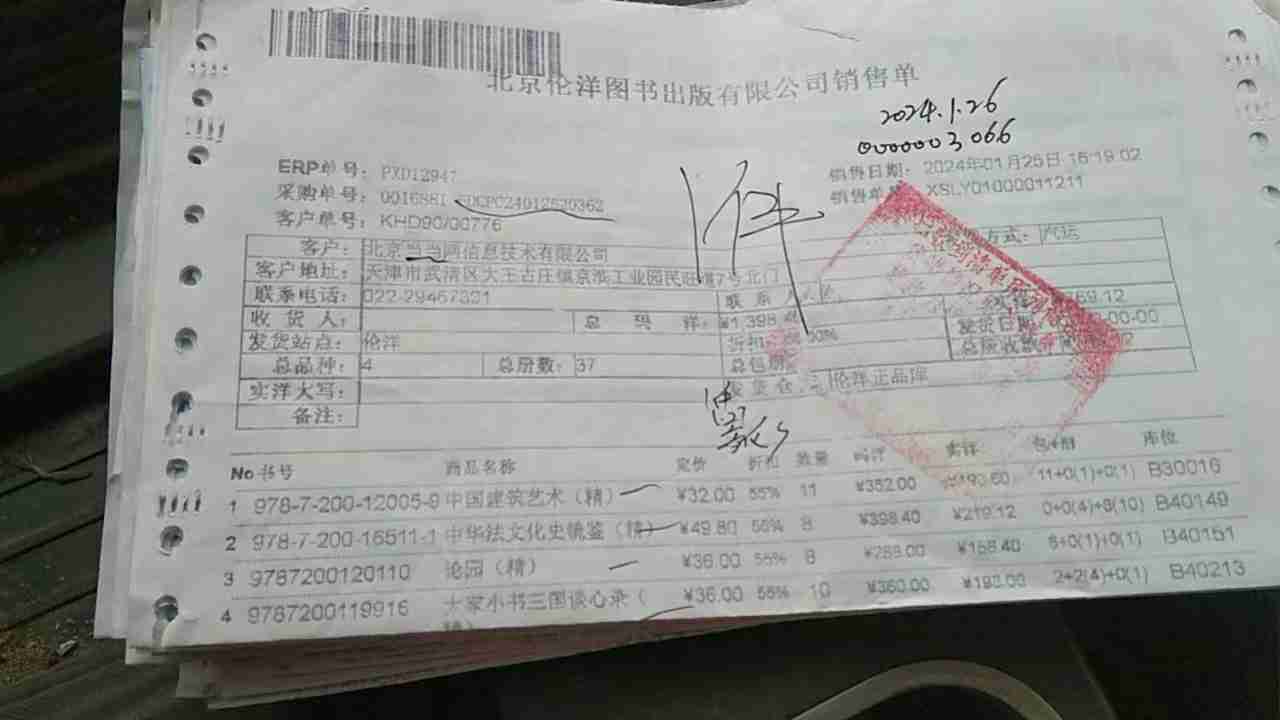 北京伦洋图书出版有限公司销售单
2024.1.26
0000003066
ERP单号： PXD12947
销售日期： 2024年01月25日 15:19:02
采购单号： 001688I
销售单 XSLY01000011211
客户单号： KHD90/00776
客户： 北京当当网信息技术有限公司 方式： 汽运
客户地址： 天津市武清区大王古庄镇京滨工业园民旺道7号北门
联系电话： 022-29467321 联系人
收货人： 总码洋： ¥1,398
发货站点： 伦洋 折扣 发货日期
总品种： 4 总册数： 37 总包册
实洋大写： 发货仓 伦洋正品库
备注：
1件
No 书号 商品名称 定价 折扣 数量 码洋 实洋 包+册 库位
1 978-7-200-12005-9 中国建筑艺术（精） ¥32.00 55% 11 ¥352.00 ¥193.60 11+0(1)+0(1) B30016
2 978-7-200-16511-1 中华法文化史镜鉴（精） ¥49.80 55% 8 ¥398.40 ¥219.12 0+0(4)+8(10) B40149
3 9787200120110 论园（精） ¥36.00 55% 8 ¥288.00 ¥158.40 8+0(1)+0(1) B40151
4 9787200119916 大家小书三国谈心录（ ¥36.00 55% 10 ¥360.00 2+2(4)+0(1) B40213
精）